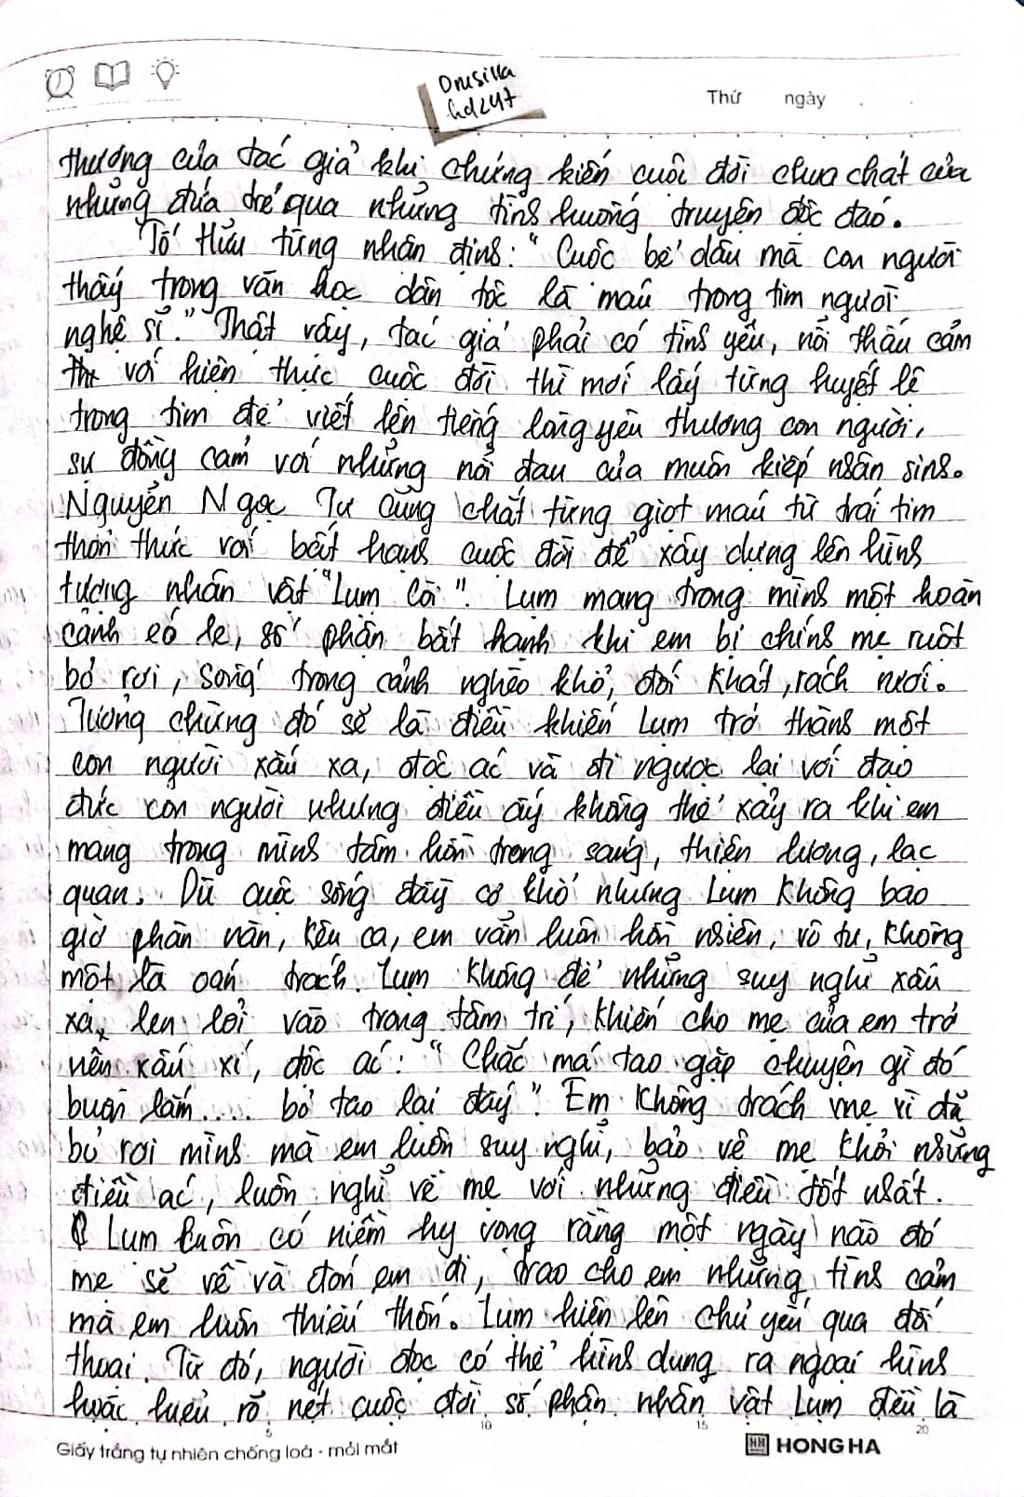 Drusilla
hd247
Thứ ngày
thương của tác giả khi chứng kiến cuộc đời chua chát của
những đứa trẻ qua những tình huống truyện độc đáo.
Tố Hữu từng nhận định: "Cuộc bể dâu mà con người
thấy trong văn học dân tộc là máu trong tim người
nghệ sĩ." Thật vậy, tác giả phải có tình yêu, nỗi thấu cảm
với hiện thực cuộc đời thì mới lấy từng huyết lệ
trong tim để viết lên tiếng lòng yêu thương con người,
sự đồng cảm với những nỗi đau của muôn kiếp nhân sinh.
Nguyễn Ngọc Tư cũng chắt từng giọt máu từ trái tim
thổn thức với bất hạnh cuộc đời để xây dựng lên hình
tượng nhân vật "Lụm Còi". Lụm mang trong mình một hoàn
cảnh éo le, số phận bất hạnh khi em bị chính mẹ ruột
bỏ rơi, sống trong cảnh nghèo khổ, đói khát, rách rưới.
Tưởng chừng đó sẽ là điều khiến Lụm trở thành một
con người xấu xa, độc ác và đi ngược lại với đạo
đức con người nhưng điều ấy không thể xảy ra khi em
mang trong mình tâm hồn trong sáng, thiện lương, lạc
quan. Dù cuộc sống đầy cơ khổ nhưng Lụm không bao
giờ phàn nàn, kêu ca, em vẫn luôn hồn nhiên, vô tư, không
một là oán trách. Lụm không để những suy nghĩ xấu
xa len lỏi vào trong tâm trí, khiến cho mẹ của em trở
nên xấu xí, độc ác: "Chắc má tao gặp chuyện gì đó
buồn lắm.... bỏ tao lại đây". Em không trách mẹ vì đã
bỏ rơi mình mà em luôn suy nghĩ, bảo vệ mẹ khỏi những
điều ác, luôn nghĩ về mẹ với những điều tốt nhất.
Lụm luôn có niềm hy vọng rằng một ngày nào đó
mẹ sẽ về và đón em đi, trao cho em những tình cảm
mà em luôn thiếu thốn. Lụm hiện lên chủ yếu qua đối
thoại. Từ đó, người đọc có thể hình dung ra ngoại hình
hoặc hiểu rõ nét cuộc đời số phận nhân vật Lụm đều là
5 10 15 20
Giấy trắng tự nhiên chống loá - mỏi mắt HH HONG HA